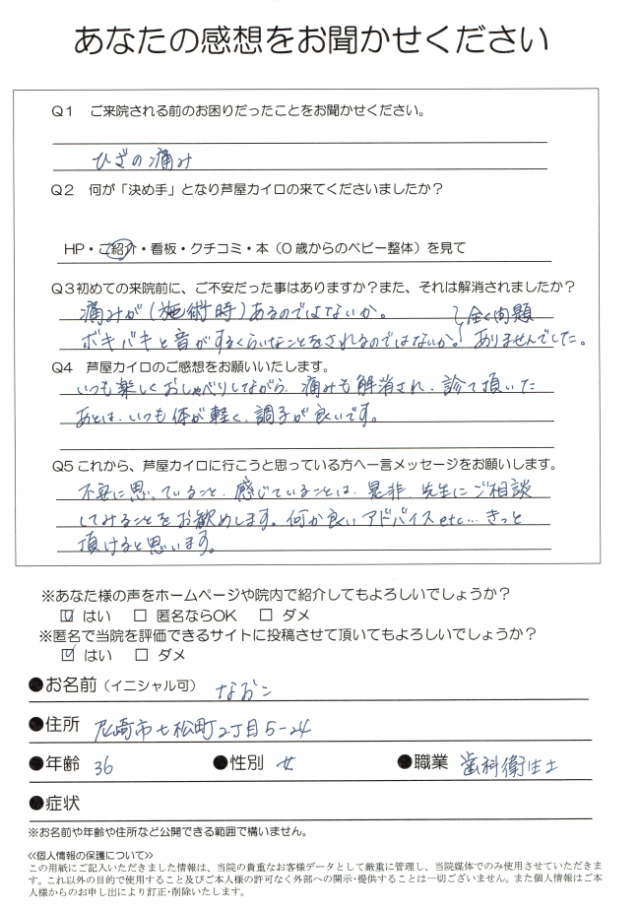 あなたの感想をお聞かせください
Q1 ご来院される前のお困りだったことをお聞かせください。
ひざの痛み
Q2 何が「決め手」となり芦屋カイロの来てくださいましたか？
HP・ご紹介・看板・クチコミ・本（0歳からのベビー整体）を見て
Q3初めての来院前に、ご不安だった事はありますか？また、それは解消されましたか？
痛みが（施術時）あるのではないか。
ボキバキと音がするくらいなことをされるのではないか。
全く問題
ありませんでした。
Q4 芦屋カイロのご感想をお願いいたします。
いつも楽しくおしゃべりしながら、痛みも解消され、診て頂いた
あとは、いつも体が軽く、調子が良いです。
Q5これから、芦屋カイロに行こうと思っている方へ一言メッセージをお願いします。
不安に思っていること、感じていることは、是非、先生にご相談
してみることをお勧めします。何か良いアドバイスetc…きっと
頂けると思います。
※あなた様の声をホームページや院内で紹介してもよろしいでしょうか？
☑ はい □ 匿名ならOK □ ダメ
※匿名で当院を評価できるサイトに投稿させて頂いてもよろしいでしょうか？
☑ はい □ ダメ
●お名前（イニシャル可） なおこ
●住所 尼崎市七松町2丁目5-24
●年齢 36 ●性別 女 ●職業 歯科衛生士
●症状
※お名前や年齢や住所など公開できる範囲で構いません。
≪個人情報の保護について≫
この用紙にご記入いただきました情報は、当院の貴重なお客様データとして厳重に管理し、当院媒体でのみ使用させていただきま
す。これ以外の目的で使用すること及びご本人様の許可なく外部への開示・提供することは一切ございません。また個人情報はご本
人様からのお申し出により訂正・削除いたします。